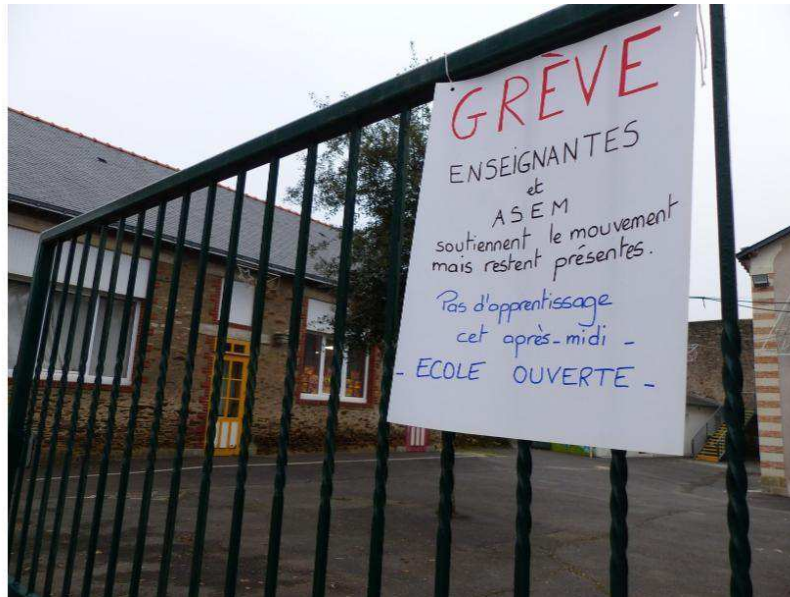 GRÈVE
ENSEIGNANTES
et
ASEM
soutiennent le mouvement
mais restent présentes.
Pas d'apprentissage
cet après-midi -
- ECOLE OUVERTE -